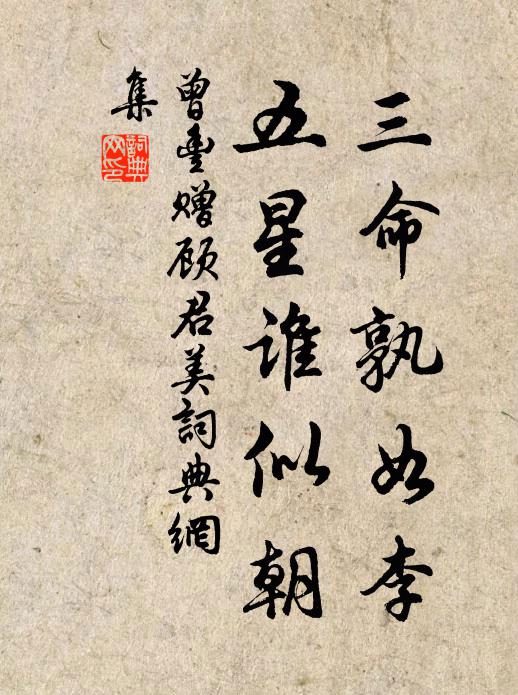 三命孰如李
五星谁似朝
曾豐赠顾君美詞典網
集
詞典
网印